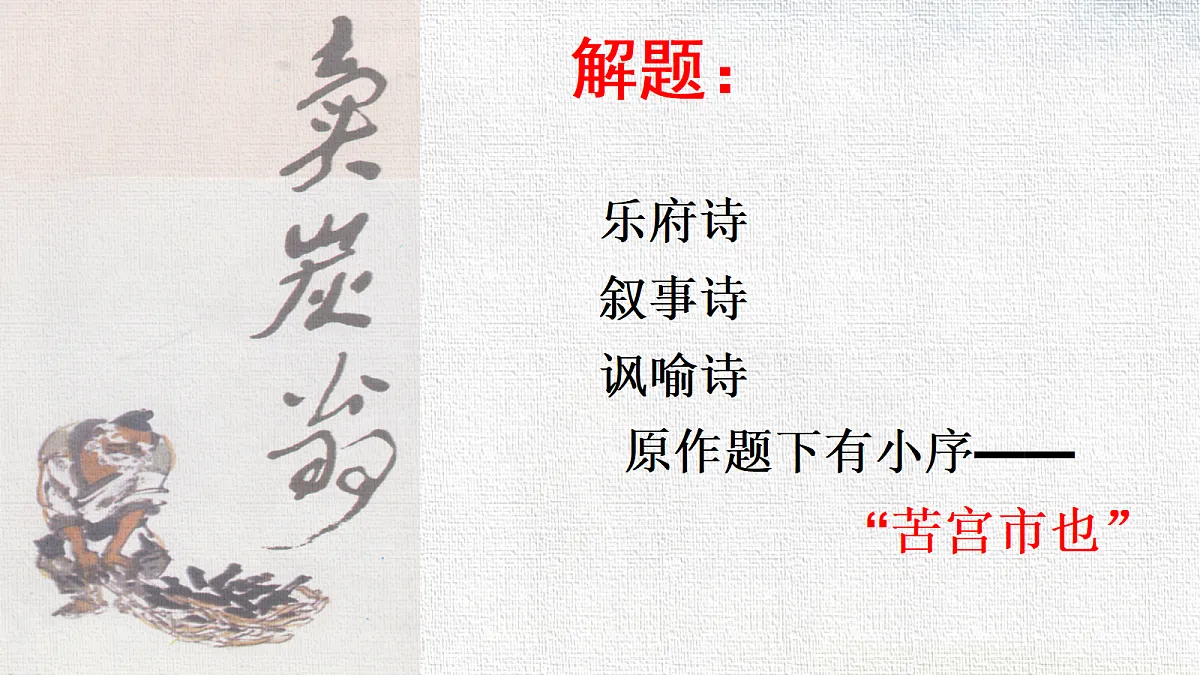 卖炭翁
解题：
乐府诗
叙事诗
讽喻诗
原作题下有小序——
“苦宫市也”